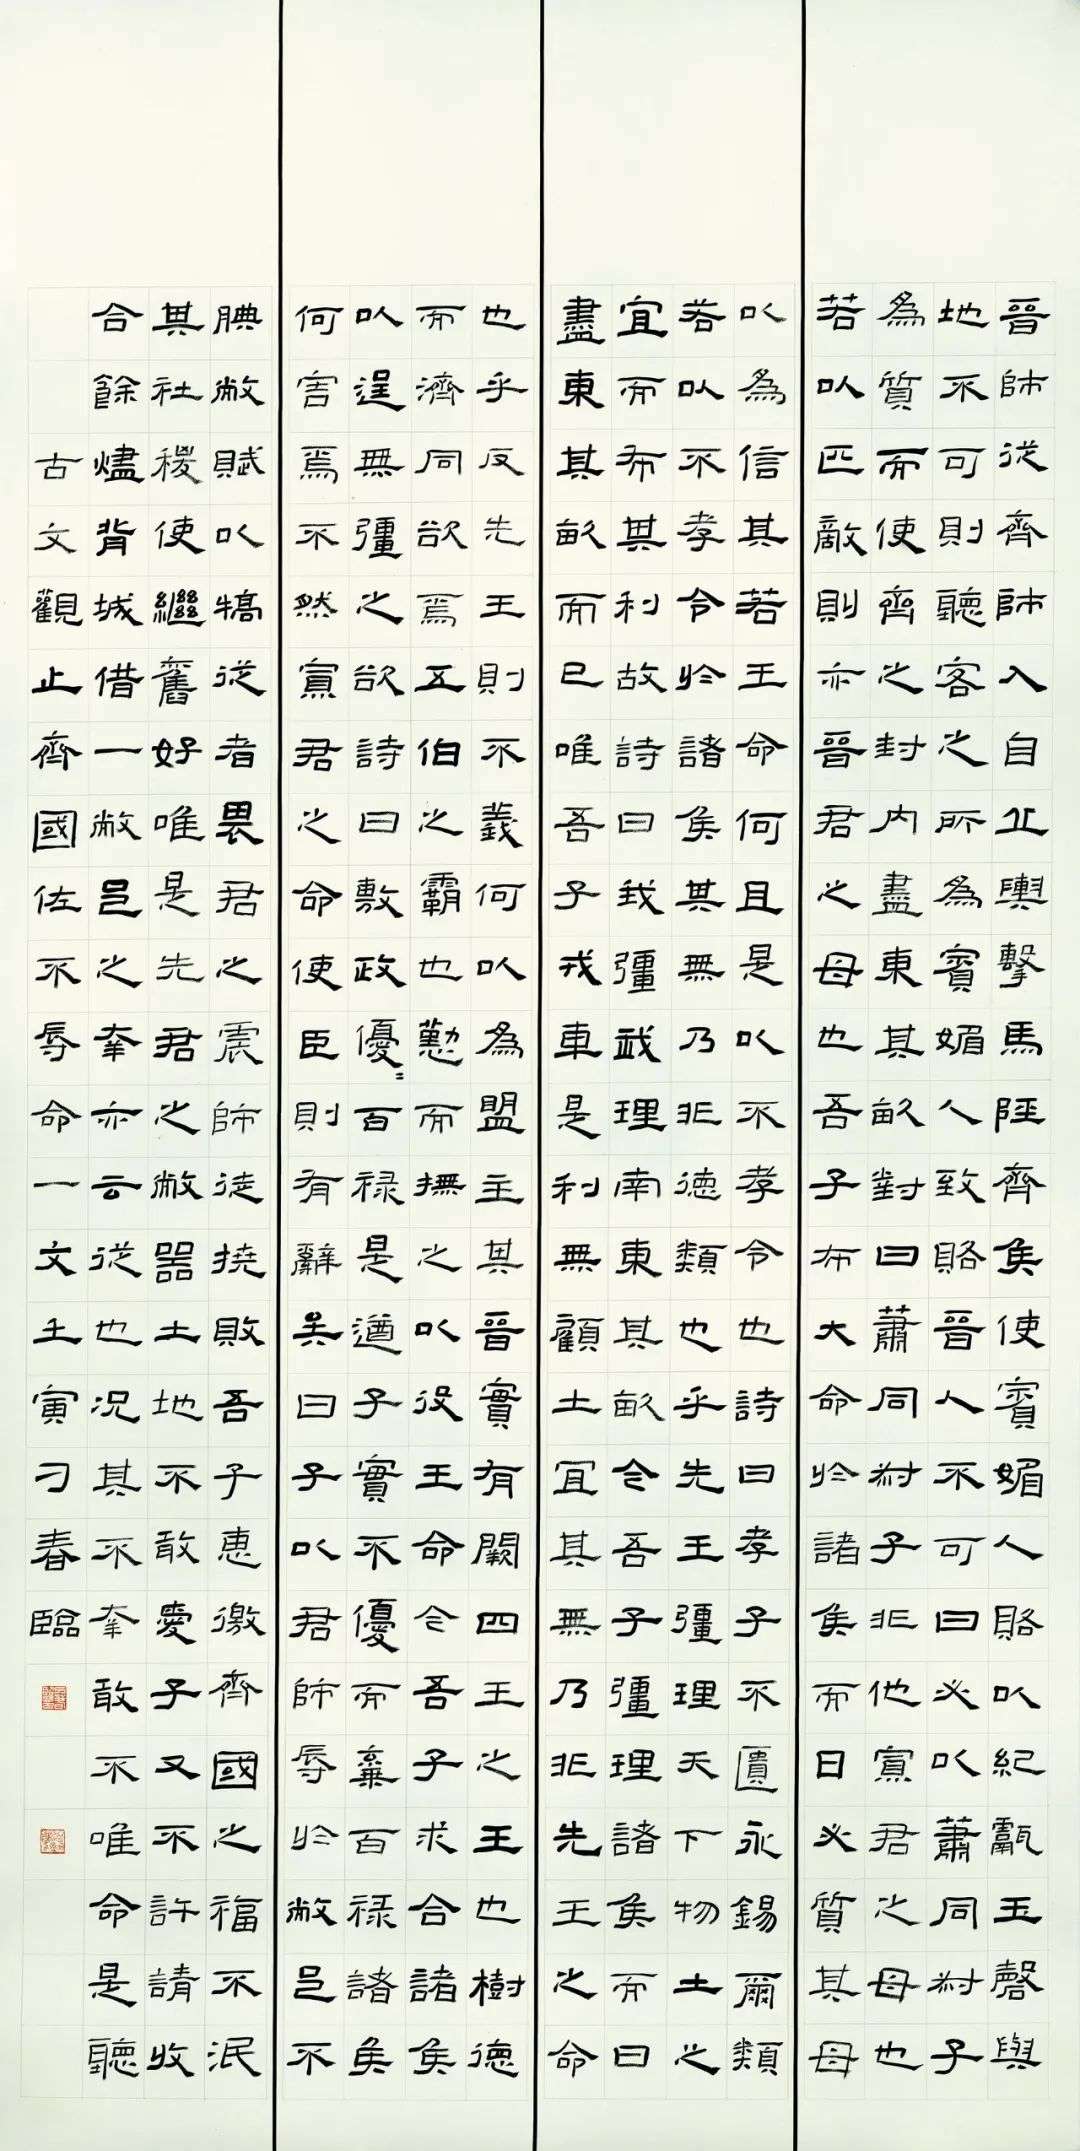 晉師從齊師入自丘輿擊馬陘齊侯使賓媚人賂以紀甗玉磬與
地不可則聽客之所為賓媚人致賂晉人不可曰必以蕭同叔子
為質而使齊之封內盡東其畝對曰蕭同叔子非他寡君之母也
若以匹敵則亦晉君之母也吾子布大命於諸侯而曰必質其母
以為信其若王命何且是以不孝令也詩曰孝子不匱永錫爾類
若以不孝令於諸侯其無乃非德類也乎先王疆理天下物土之
宜而布其利故詩曰我疆我理南東其畝今吾子疆理諸侯而曰
盡東其畝而已唯吾子戎車是利無顧土宜其無乃非先王之命
也乎反先王則不義何以為盟主其晉實有闕四王之王也樹德
而濟同欲焉五伯之霸也勤而撫之以役王命今吾子求合諸侯
以逞無疆之欲詩曰敷政優〻百祿是遒子實不優而棄百祿諸侯
何害焉不然寡君之命使臣則有辭矣曰子以君師辱於敝邑不
腆敝賦以犒從者畏君之震師徒撓敗吾子惠徼齊國之福不泯
其社稷使繼舊好唯是先君之敝器土地不敢愛子又不許請收
合餘燼背城借一敝邑之幸亦云從也況其不幸敢不唯命是聽
古文觀止齊國佐不辱命一文壬寅刁春臨